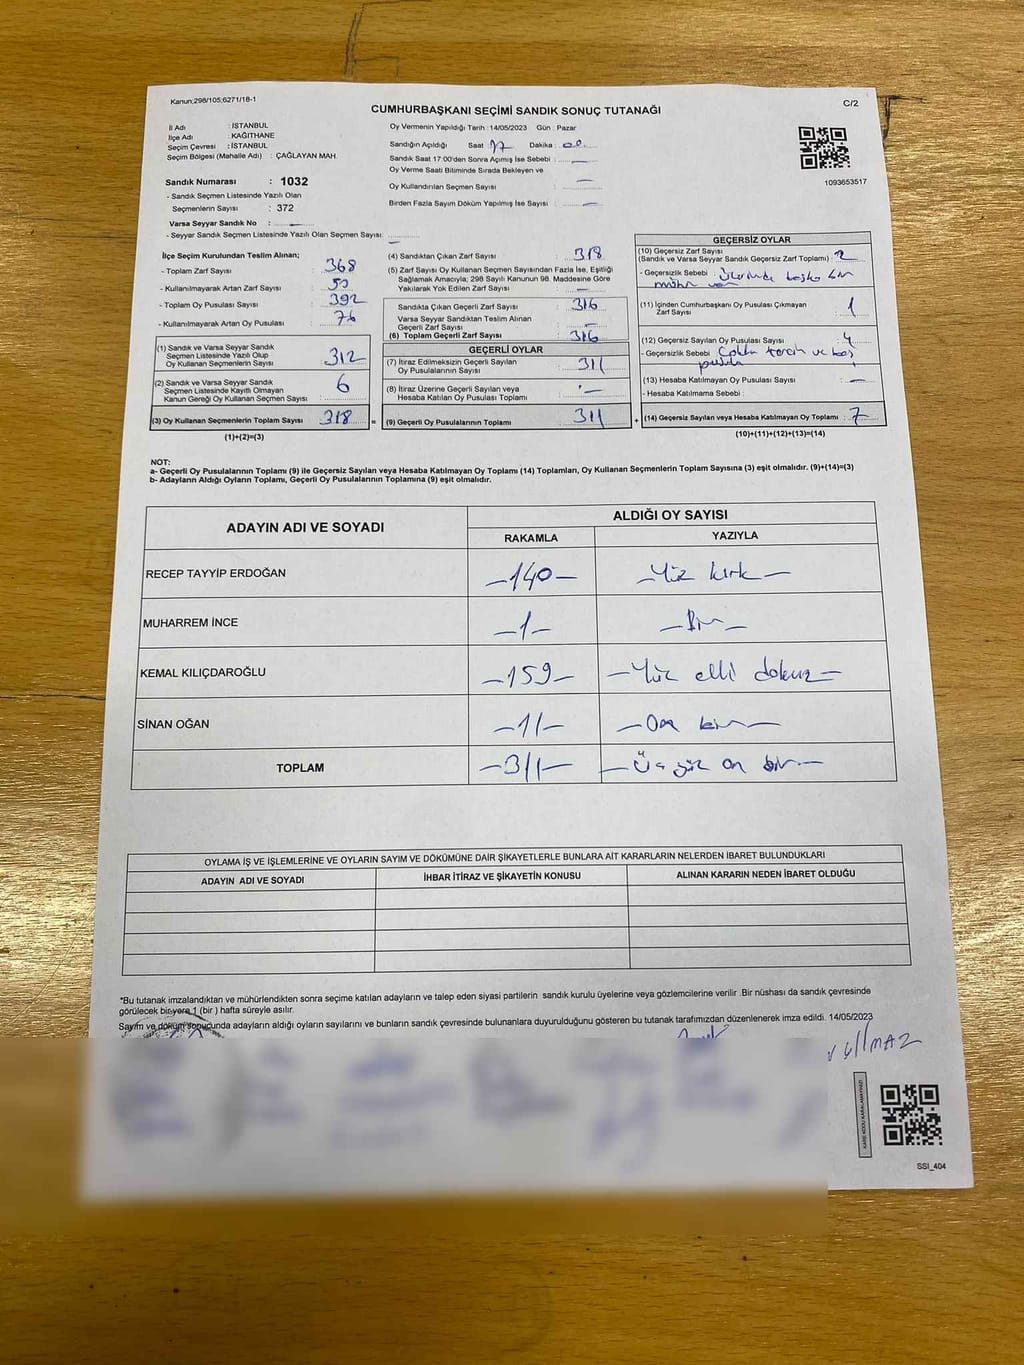 Kanun:298/105;6271/18-1
CUMHURBAŞKANI SEÇİMİ SANDIK SONUÇ TUTANAĞI
C/2
İl Adı : İSTANBUL
İlçe Adı : KAĞITHANE
Seçim Çevresi : İSTANBUL
Seçim Bölgesi (Mahalle Adı) : ÇAĞLAYAN MAH.
Sandık Numarası : 1032
- Sandık Seçmen Listesinde Yazılı Olan
Seçmenlerin Sayısı : 372
Varsa Seyyar Sandık No : —
- Seyyar Sandık Seçmen Listesinde Yazılı Olan Seçmen Sayısı: —
Oy Vermenin Yapıldığı Tarih : 14/05/2023 Gün : Pazar
Sandığın Açıldığı Saat 17 Dakika : 00
Sandık Saat 17:00'den Sonra Açımış İse Sebebi : —
Oy Verme Saati Bitiminde Sırada Bekleyen ve
Oy Kullandırılan Seçmen Sayısı : —
Birden Fazla Sayım Döküm Yapılmış İse Sayısı : —
1093653517
İlçe Seçim Kurulundan Teslim Alınan;
- Toplam Zarf Sayısı : 368
- Kullanılmayarak Artan Zarf Sayısı : 50
- Toplam Oy Pusulası Sayısı : 392
- Kullanılmayarak Artan Oy Pusulası : 76
(1) Sandık ve Varsa Seyyar Sandık
Seçmen Listesinde Yazılı Olup
Oy Kullanan Seçmenlerin Sayısı : 312
(2) Sandık ve Varsa Seyyar Sandık
Seçmen Listesinde Kayıtlı Olmayan
Kanun Gereği Oy Kullanan Seçmen Sayısı : 6
(3) Oy Kullanan Seçmenlerin Toplam Sayısı : 318 =
(1)+(2)=(3)
(4) Sandıktan Çıkan Zarf Sayısı : 318
(5) Zarf Sayısı Oy Kullanan Seçmen Sayısından Fazla İse, Eşitliği
Sağlamak Amacıyla; 298 Sayılı Kanunun 98. Maddesine Göre
Yakılarak Yok Edilen Zarf Sayısı : —
Sandıkta Çıkan Geçerli Zarf Sayısı : 316
Varsa Seyyar Sandıktan Teslim Alınan
Geçerli Zarf Sayısı : —
(6) Toplam Geçerli Zarf Sayısı : 316
GEÇERLİ OYLAR
(7) İtiraz Edilmeksizin Geçerli Sayılan
Oy Pusulalarının Sayısı : 311
(8) İtiraz Üzerine Geçerli Sayılan veya
Hesaba Katılan Oy Pusulası Toplamı : —
(9) Geçerli Oy Pusulalarının Toplamı : 311 +
GEÇERSİZ OYLAR
(10) Geçersiz Zarf Sayısı
(Sandık ve Varsa Seyyar Sandık Geçersiz Zarf Toplamı) : 2
- Geçersizlik Sebebi : Üzerinde başka bir
mühür var
(11) İçinden Cumhurbaşkanı Oy Pusulası Çıkmayan
Zarf Sayısı : 1
(12) Geçersiz Sayılan Oy Pusulası Sayısı : 4
- Geçersizlik Sebebi : Çoklu tercih ve boş
pusula
(13) Hesaba Katılmayan Oy Pusulası Sayısı : —
- Hesaba Katılmama Sebebi :
(14) Geçersiz Sayılan veya Hesaba Katılmayan Oy Toplamı : 7
(10)+(11)+(12)+(13)=(14)
NOT:
a- Geçerli Oy Pusulalarının Toplamı (9) ile Geçersiz Sayılan veya Hesaba Katılmayan Oy Toplamı (14) Toplamları, Oy Kullanan Seçmenlerin Toplam Sayısına (3) eşit olmalıdır. (9)+(14)=(3)
b- Adayların Aldığı Oyların Toplamı, Geçerli Oy Pusulalarının Toplamına (9) eşit olmalıdır.
ADAYIN ADI VE SOYADI
ALDIĞI OY SAYISI
RAKAMLA YAZIYLA
RECEP TAYYİP ERDOĞAN —140— —Yüz kırk—
MUHARREM İNCE —1— —Bir—
KEMAL KILIÇDAROĞLU —159— —Yüz elli dokuz—
SİNAN OĞAN —11— —On bir—
TOPLAM —311— —Üç yüz on bir—
OYLAMA İŞ VE İŞLEMLERİNE VE OYLARIN SAYIM VE DÖKÜMÜNE DAİR ŞİKAYETLERLE BUNLARA AİT KARARLARIN NELERDEN İBARET BULUNDUKLARI
ADAYIN ADI VE SOYADI İHBAR İTİRAZ VE ŞİKAYETİN KONUSU ALINAN KARARIN NEDEN İBARET OLDUĞU
*Bu tutanak imzalandıktan ve mühürlendikten sonra seçime katılan adayların ve talep eden siyasi partilerin sandık kurulu üyelerine veya gözlemcilerine verilir .Bir nüshası da sandık çevresinde
görülecek bir yere 1 (bir ) hafta süreyle asılır.
Sayım ve döküm sonucunda adayların aldığı oyların sayılarını ve bunların sandık çevresinde bulunanlara duyurulduğunu gösteren bu tutanak tarafımızdan düzenlenerek imza edildi. 14/05/2023
YILMAZ
KARE KODU KARALAMAYINIZ!
SSI_404